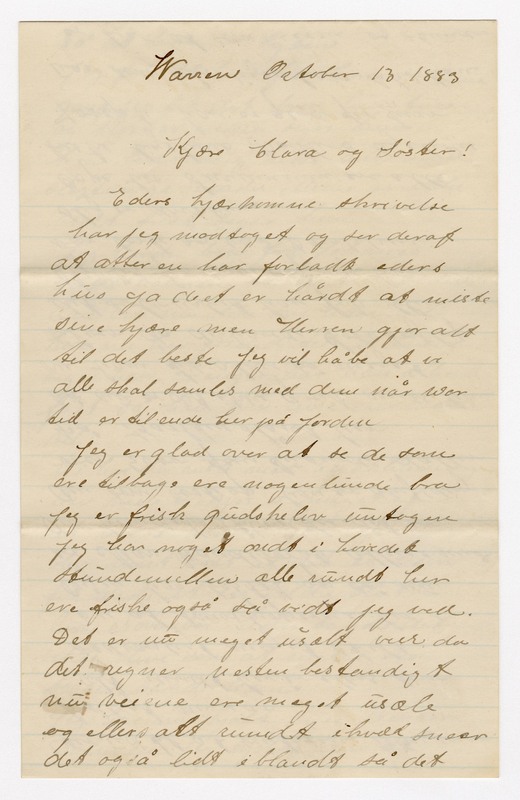 Warren October 13 1883
Kjære Clara og Søster!
Eders kjærkomne skrivelse
har jeg modtaget og ser deraf
at atter en har forladt eders
hus ja det er hårdt at miste
sine kjære men Herren gjør alt
til det beste Jeg vil håbe at vi
alle skal samles med dem når vor
tid er til ende her på Jorden
Jeg er glad over at se de som
ere tilbage ere nogenlunde bra
Jeg er frisk gudskelov untagen
Jeg har noget ondt i hovedet
stundemellem alle rundt her
ere friske også så vidt jeg ved.
Det er nu meget usælt veir da
det regner nesten bestandigt
nu veiene ere meget usæle
og ellers alt rundt sneer
det også lidt iblandt så det